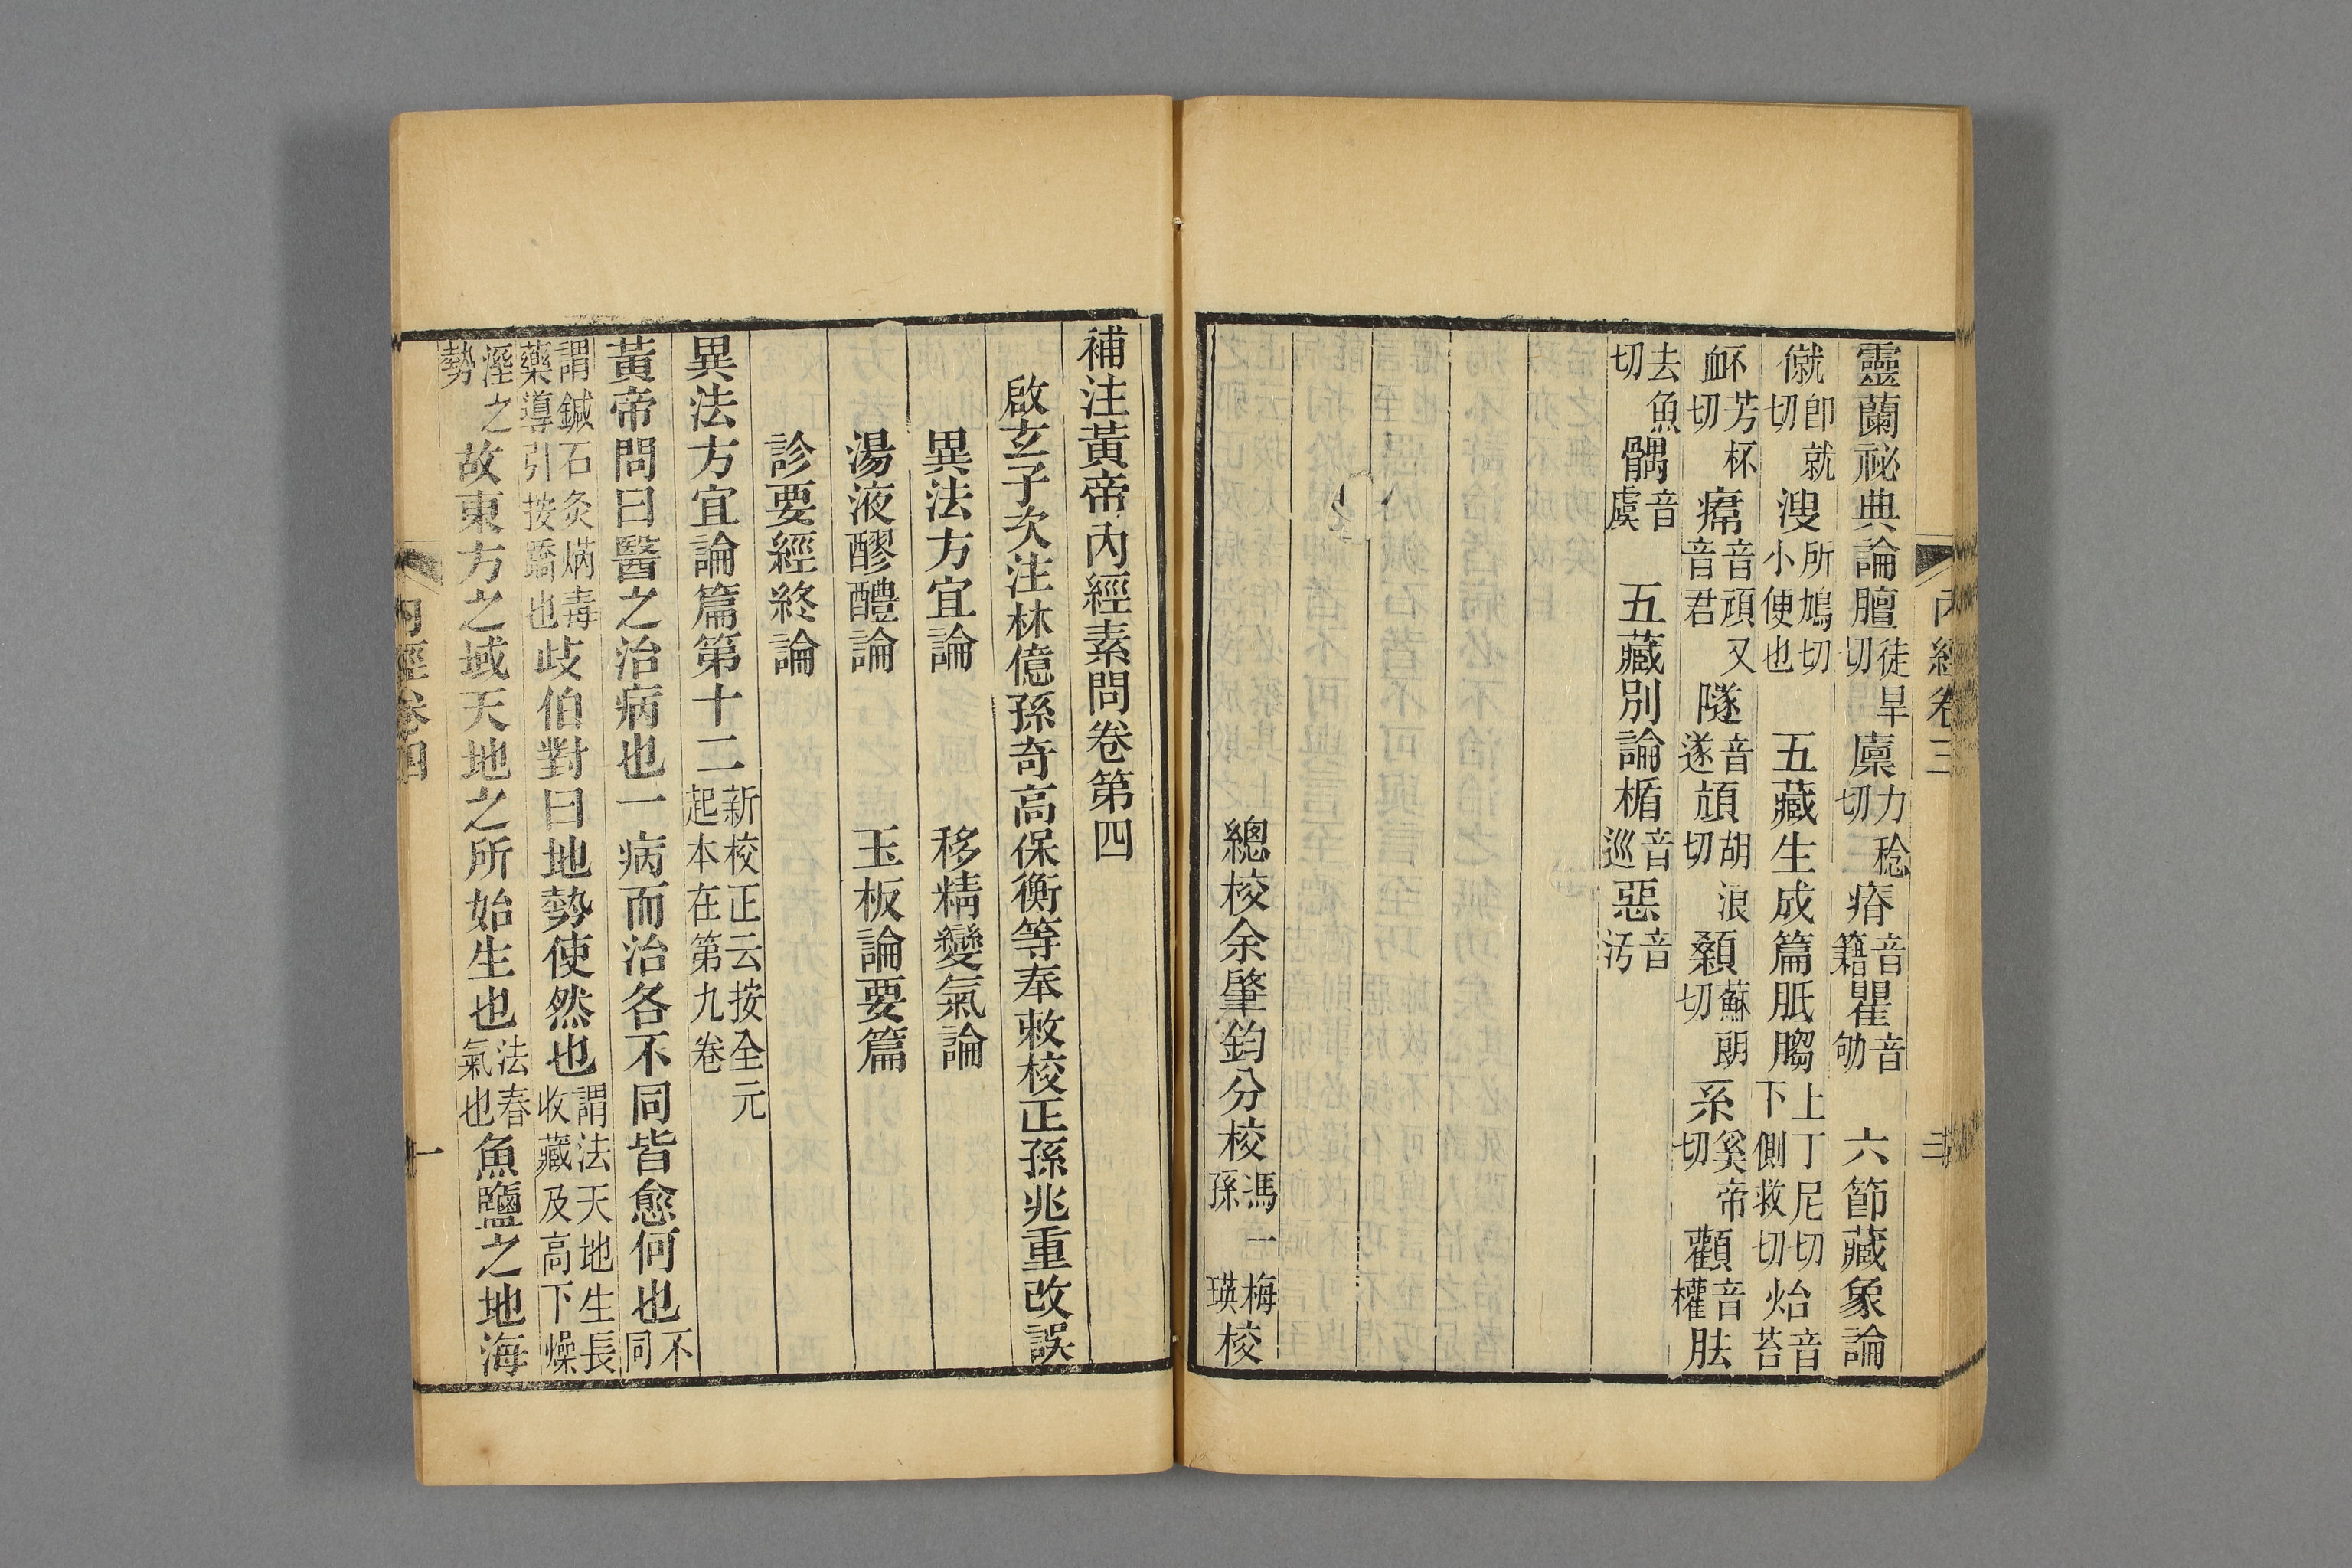 靈蘭祕典論膻徒旱切廩力稔切瘠音籍瞿音劬 六節藏象論
僦即就切溲所鳩切小便也 五藏生成篇胝䐢上丁尼切下側救切炲音苔
衃芳杯切㾕音頑又音君隧音遂頏胡浪切顙蘇朗切系奚帝切顴音權胠
去魚切髃音虞 五藏別論楯音巡惡音污
總校余肇鈞分校馮一梅孫瑛校
內經卷三
三
補注黃帝內經素問卷第四
啟玄子次注林億孫奇高保衡等奉敕校正孫兆重改誤
異法方宜論 移精變氣論
湯液醪醴論 玉板論要篇
診要經終論
異法方宜論篇第十二新校正云按全元起本在第九卷
黃帝問曰醫之治病也一病而治各不同皆愈何也不同
謂鍼石灸焫毒藥導引按蹻也歧伯對曰地勢使然也謂法天地生長收藏及高下燥
溼之勢故東方之域天地之所始生也法春氣也魚鹽之地海
內經卷四
一